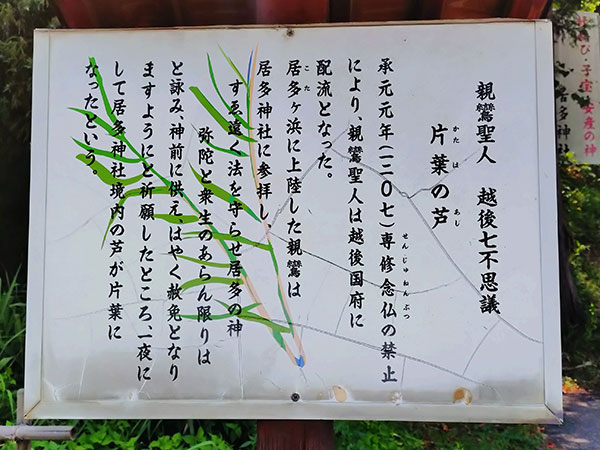 親鸞聖人 越後七不思議
片葉の芦
かたは あし
承元元年(一二〇七)専修念仏の禁止
せんじゅねんぶつ
により、親鸞聖人は越後国府に
配流となった。
居多ヶ浜に上陸した親鸞は
こた
居多神社に参拝し
すゑ遠く法を守らせ居多の神
弥陀と衆生のあらん限りは
と詠み、神前に供え、はやく赦免となり
ますようにと祈願したところ、一夜に
して居多神社境内の芦が片葉に
なったという。
結び・子宝・安産の神
居多神社